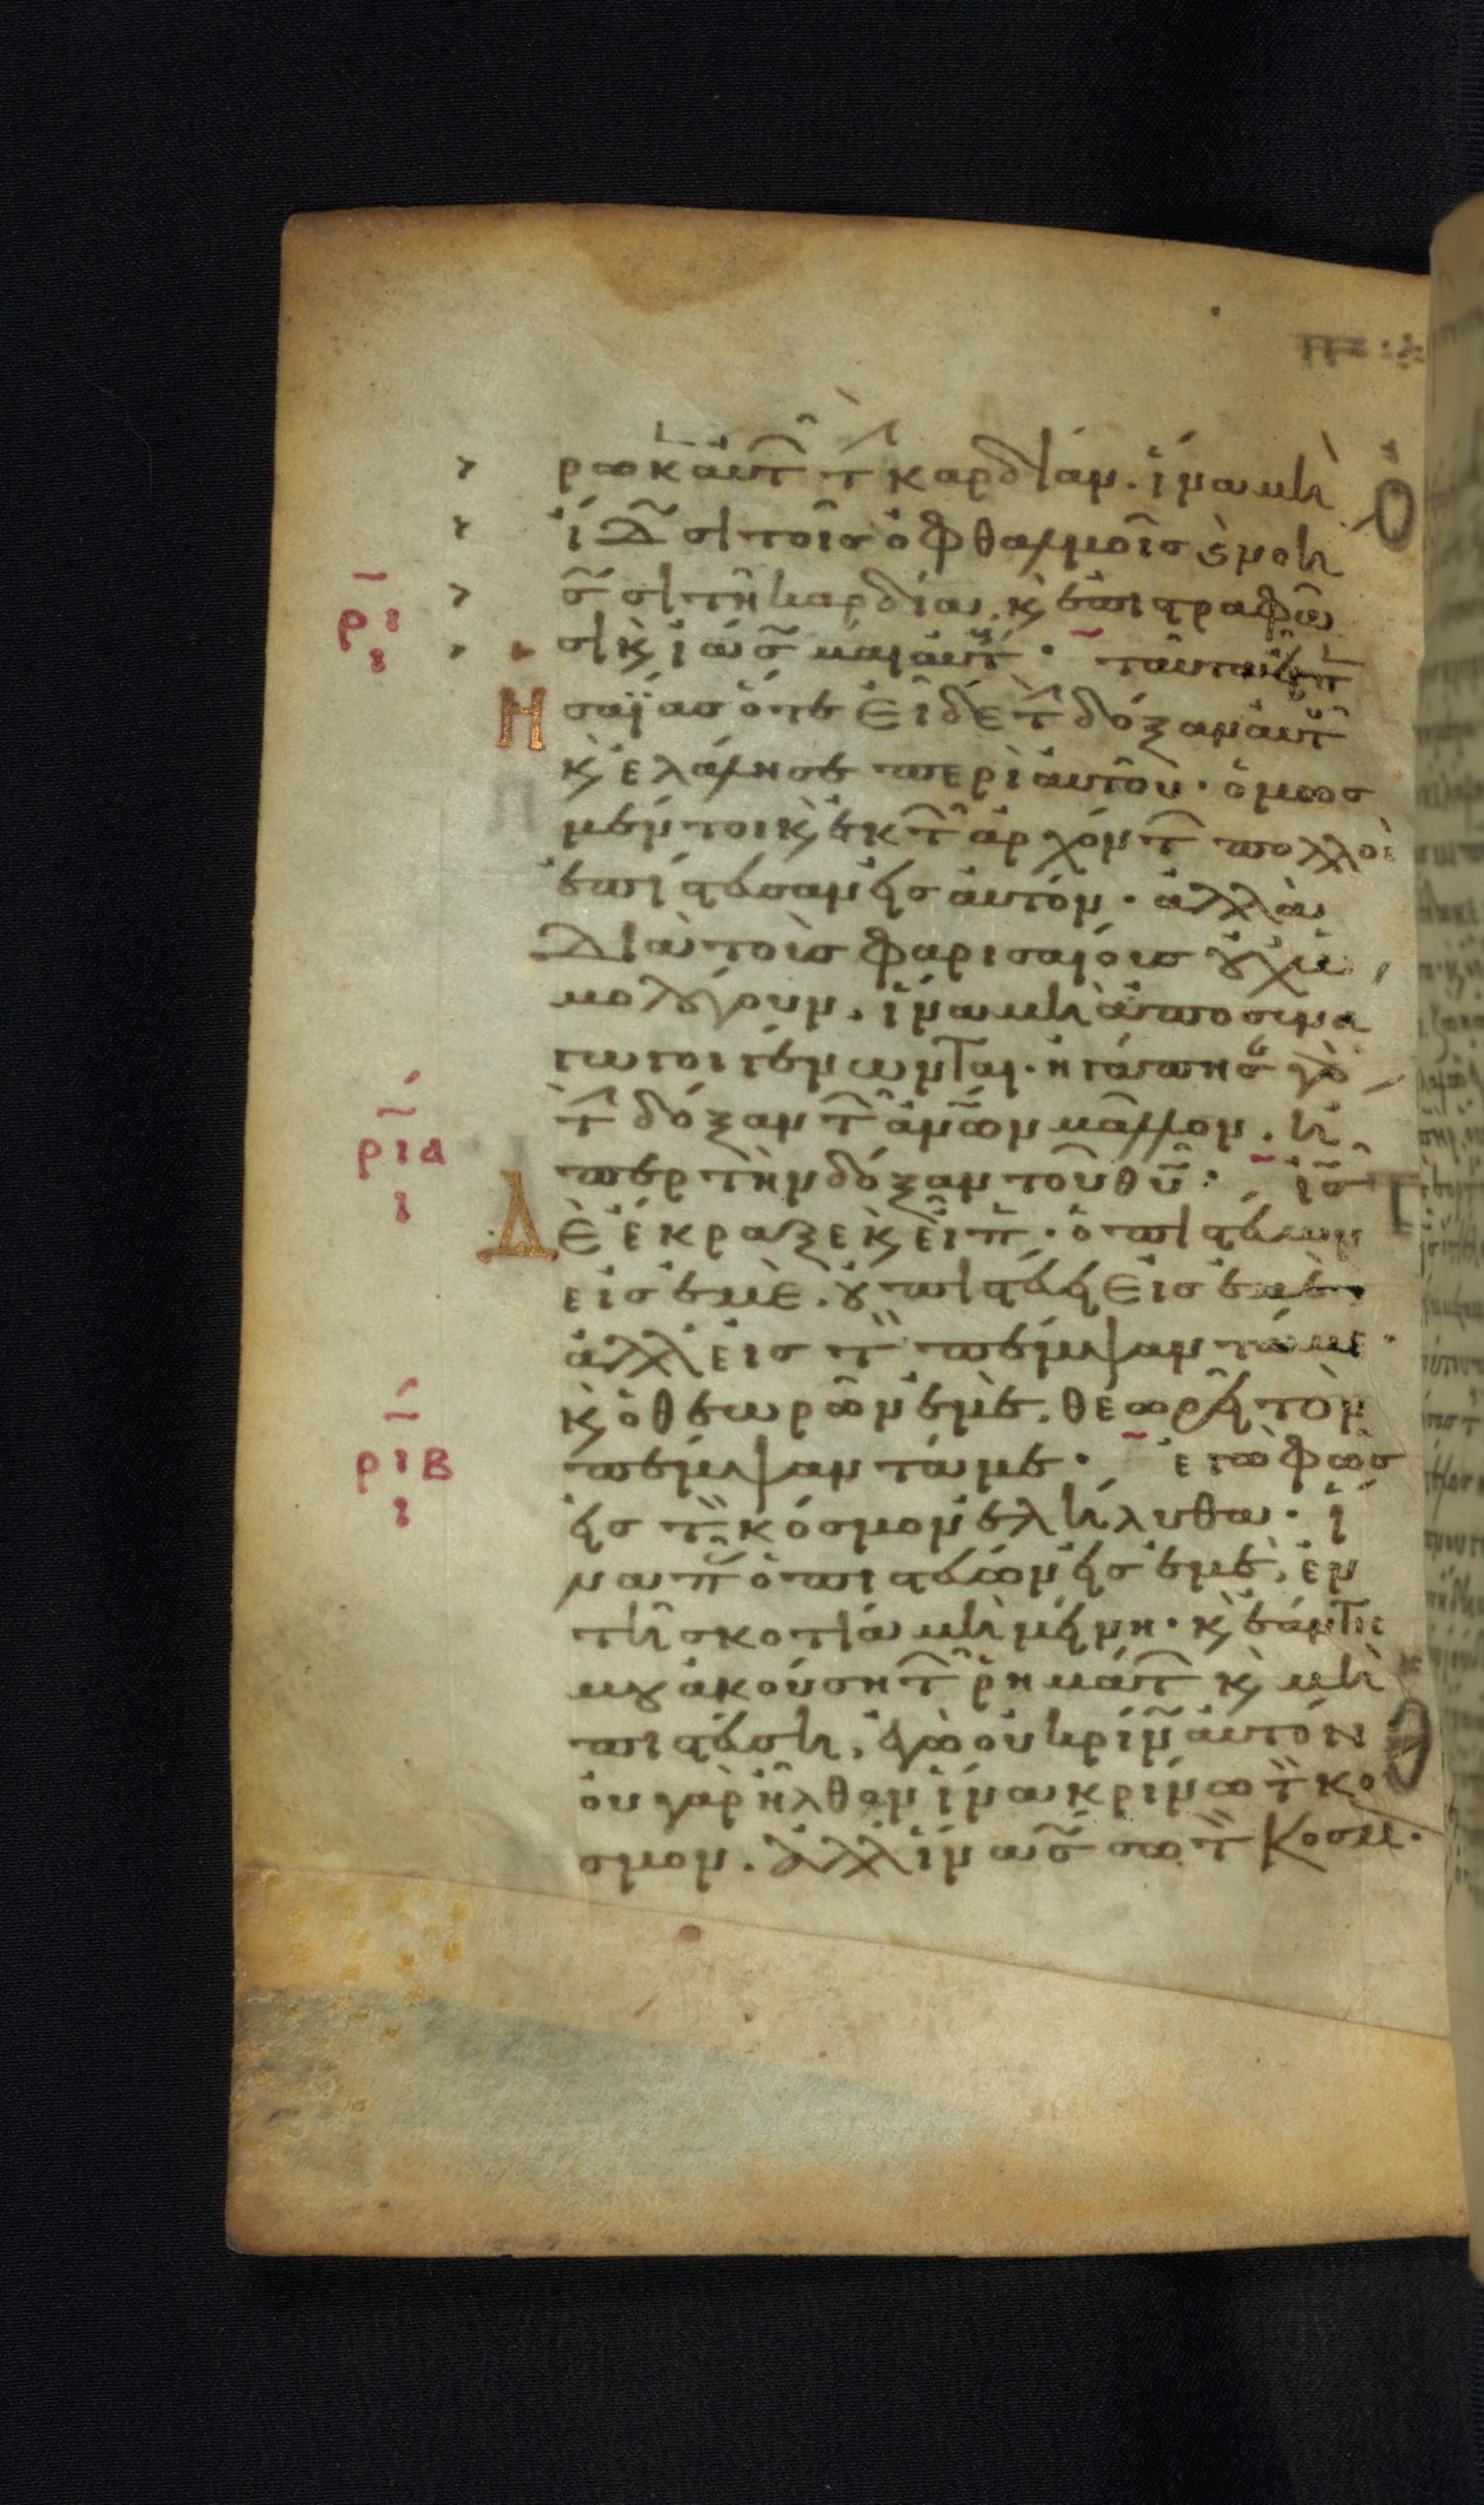 ρωκ αυτ τ καρδίαν. ἵνα μὴ
ἴδωσι τοῖς ὀφθαλμοῖς κ νοή
σ̃ σι τῆ καρδία. κ ἐπιστραφῶ
ρι
ι
σι κ ἰάσ̃ μαι αὐτ · ταῦτα εἶπ
Ησαΐας ὅτε εἶδε τ δόξαν αὐτ
κ ἐλάλησε περὶ αὐτοῦ · ὅμως
μέντοι κ ἐκ τ ἀρχόντ πολλοὶ
ἐπίστευσαν εἰς αὐτόν · ἀλλὰ
διὰ τοὺς φαρισαίους οὐχ ὡ
μολόγουν. ἵνα μὴ ἀποσυνα
γωγοι γένωνται · ἠγάπησ γὰρ
ρια
ι
τ δόξαν τ ἀνω̃ν μᾶλλον. ἤ
περ τὴν δόξαν τοῦ θυ̃ · ισ̃
Δὲ ἔκραξε κ εἶπ · ὁ πιστεύων
εἰς ἐμὲ. οὐ πιστεύει εἰς ἐμὲ
ἀλλ εἰς τ πέμψαντά με ·
κ ὁ θεωρῶν ἐμὲ. θεωρεῖ τὸν
ριβ
ι
πέμψαντά με · ἐγὼ φῶς
εἰς τ κόσμον ἐλήλυθα · ἵ
να π ὁ πιστεύων εἰς ἐμὲ, ἐν
τῆ σκοτία μὴ μείνη · κ ἐάν τις
μου ἀκούση τ ῥημάτ κ μὴ
πιστεύση, ἐγὼ οὐ κρίν̃ αὐτόν
οὐ γὰρ ἦλθον ἵνα κρίνω τ κό
σμον. ἀλλ ἵνα σ̃ σω τ κοσμ.